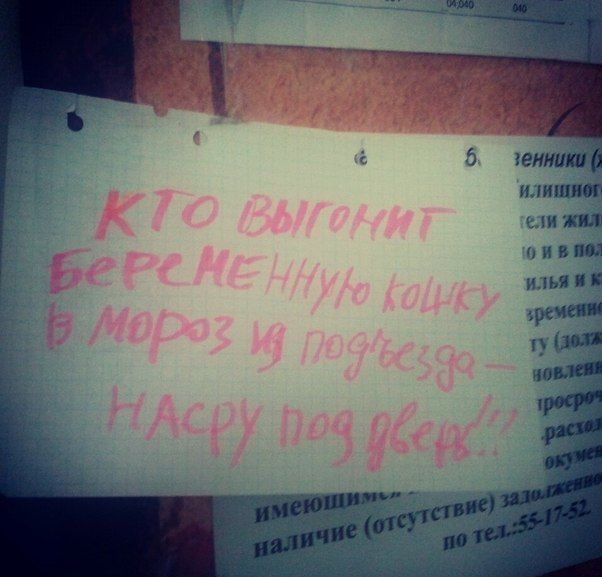 04,040 040
КТО ВЫГОНИТ
БЕРЕМЕННУЮ КОШКУ
В МОРОЗ ИЗ подъезда —
НАСРУ под дверь!!!
б.
венники
илищног
ели жил
о и в пол
илья и к
временно
ту (долж
новлен
просроч
расход
окумен
имеющимся
наличие (отсутствие) задолженно
по тел.:55-17-52.